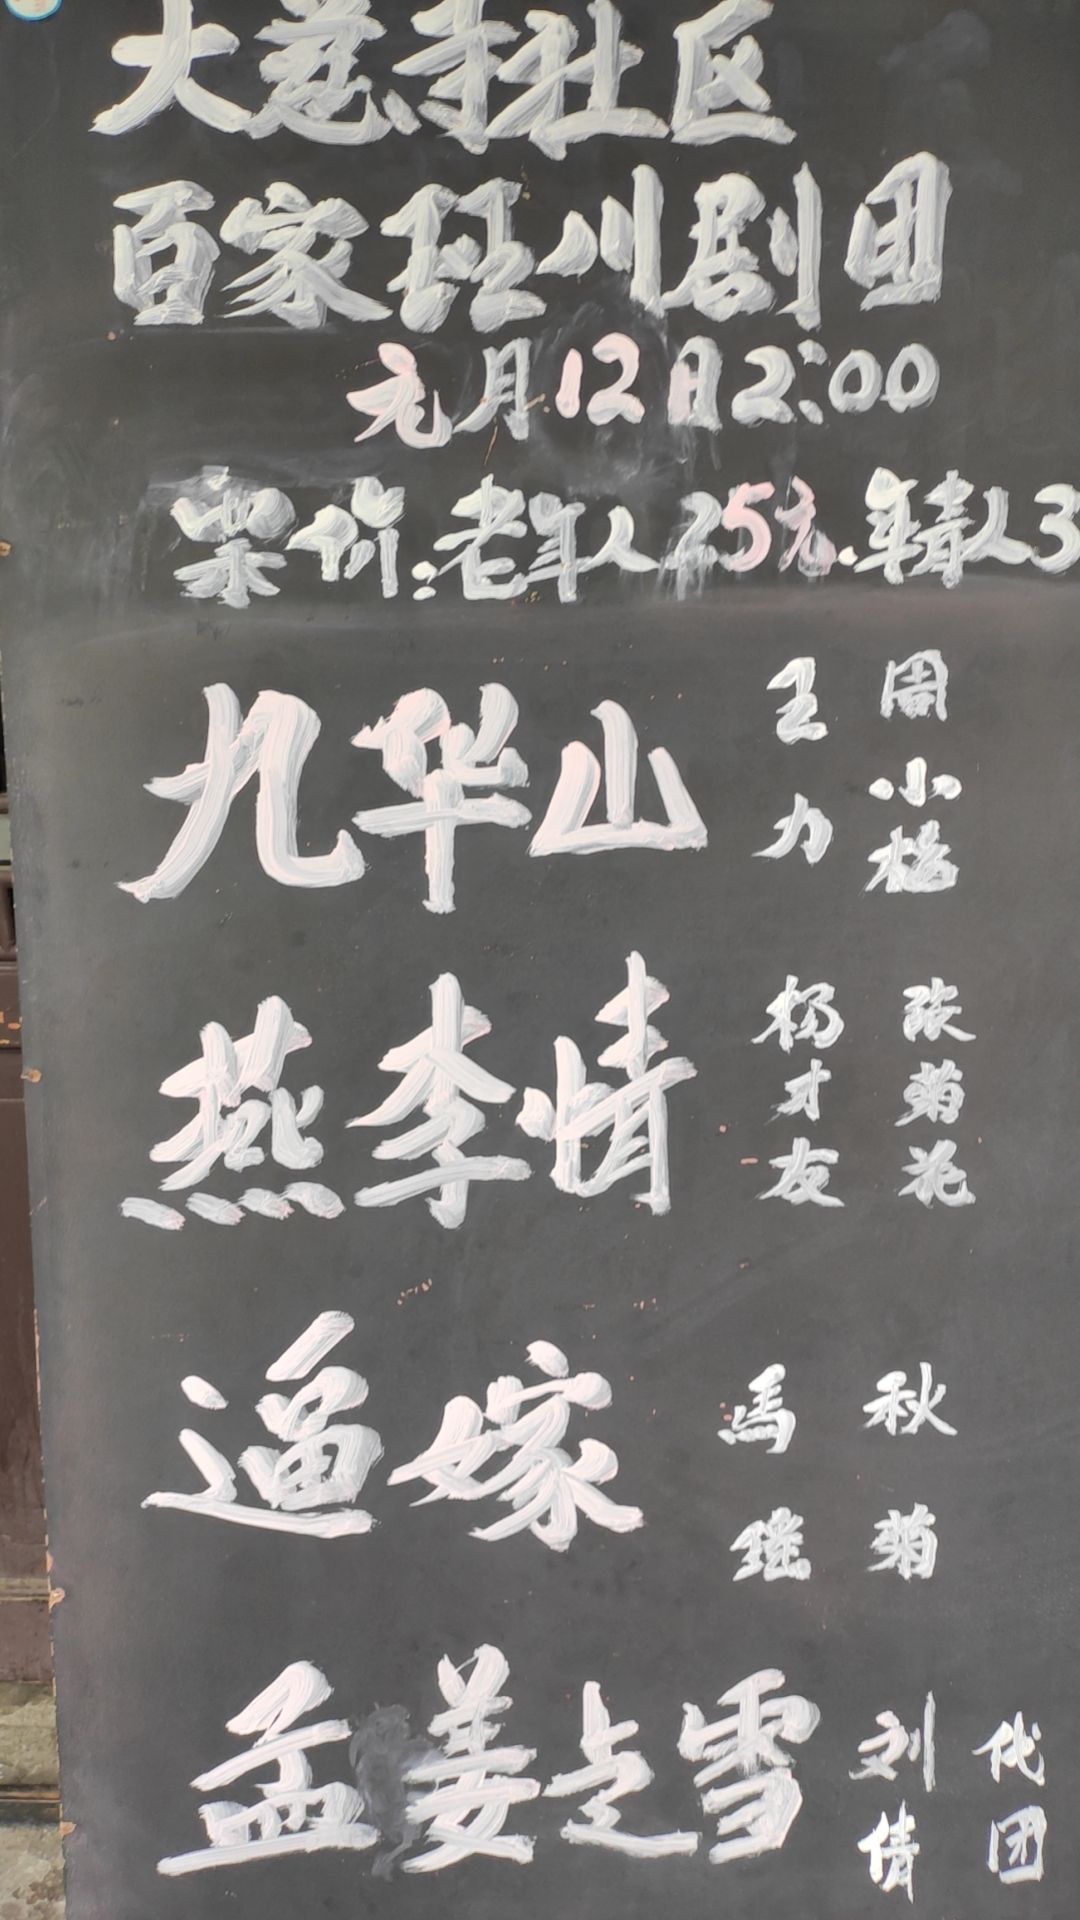 大慈寺社区
百家班川剧团
元月12日2:00
柴价:老年人25元.年青人3
九华山 王力 周小梅
燕李情 杨才友 张菊花
逼嫁 馬瑶 秋菊
孟姜走雪 刘倩 代团